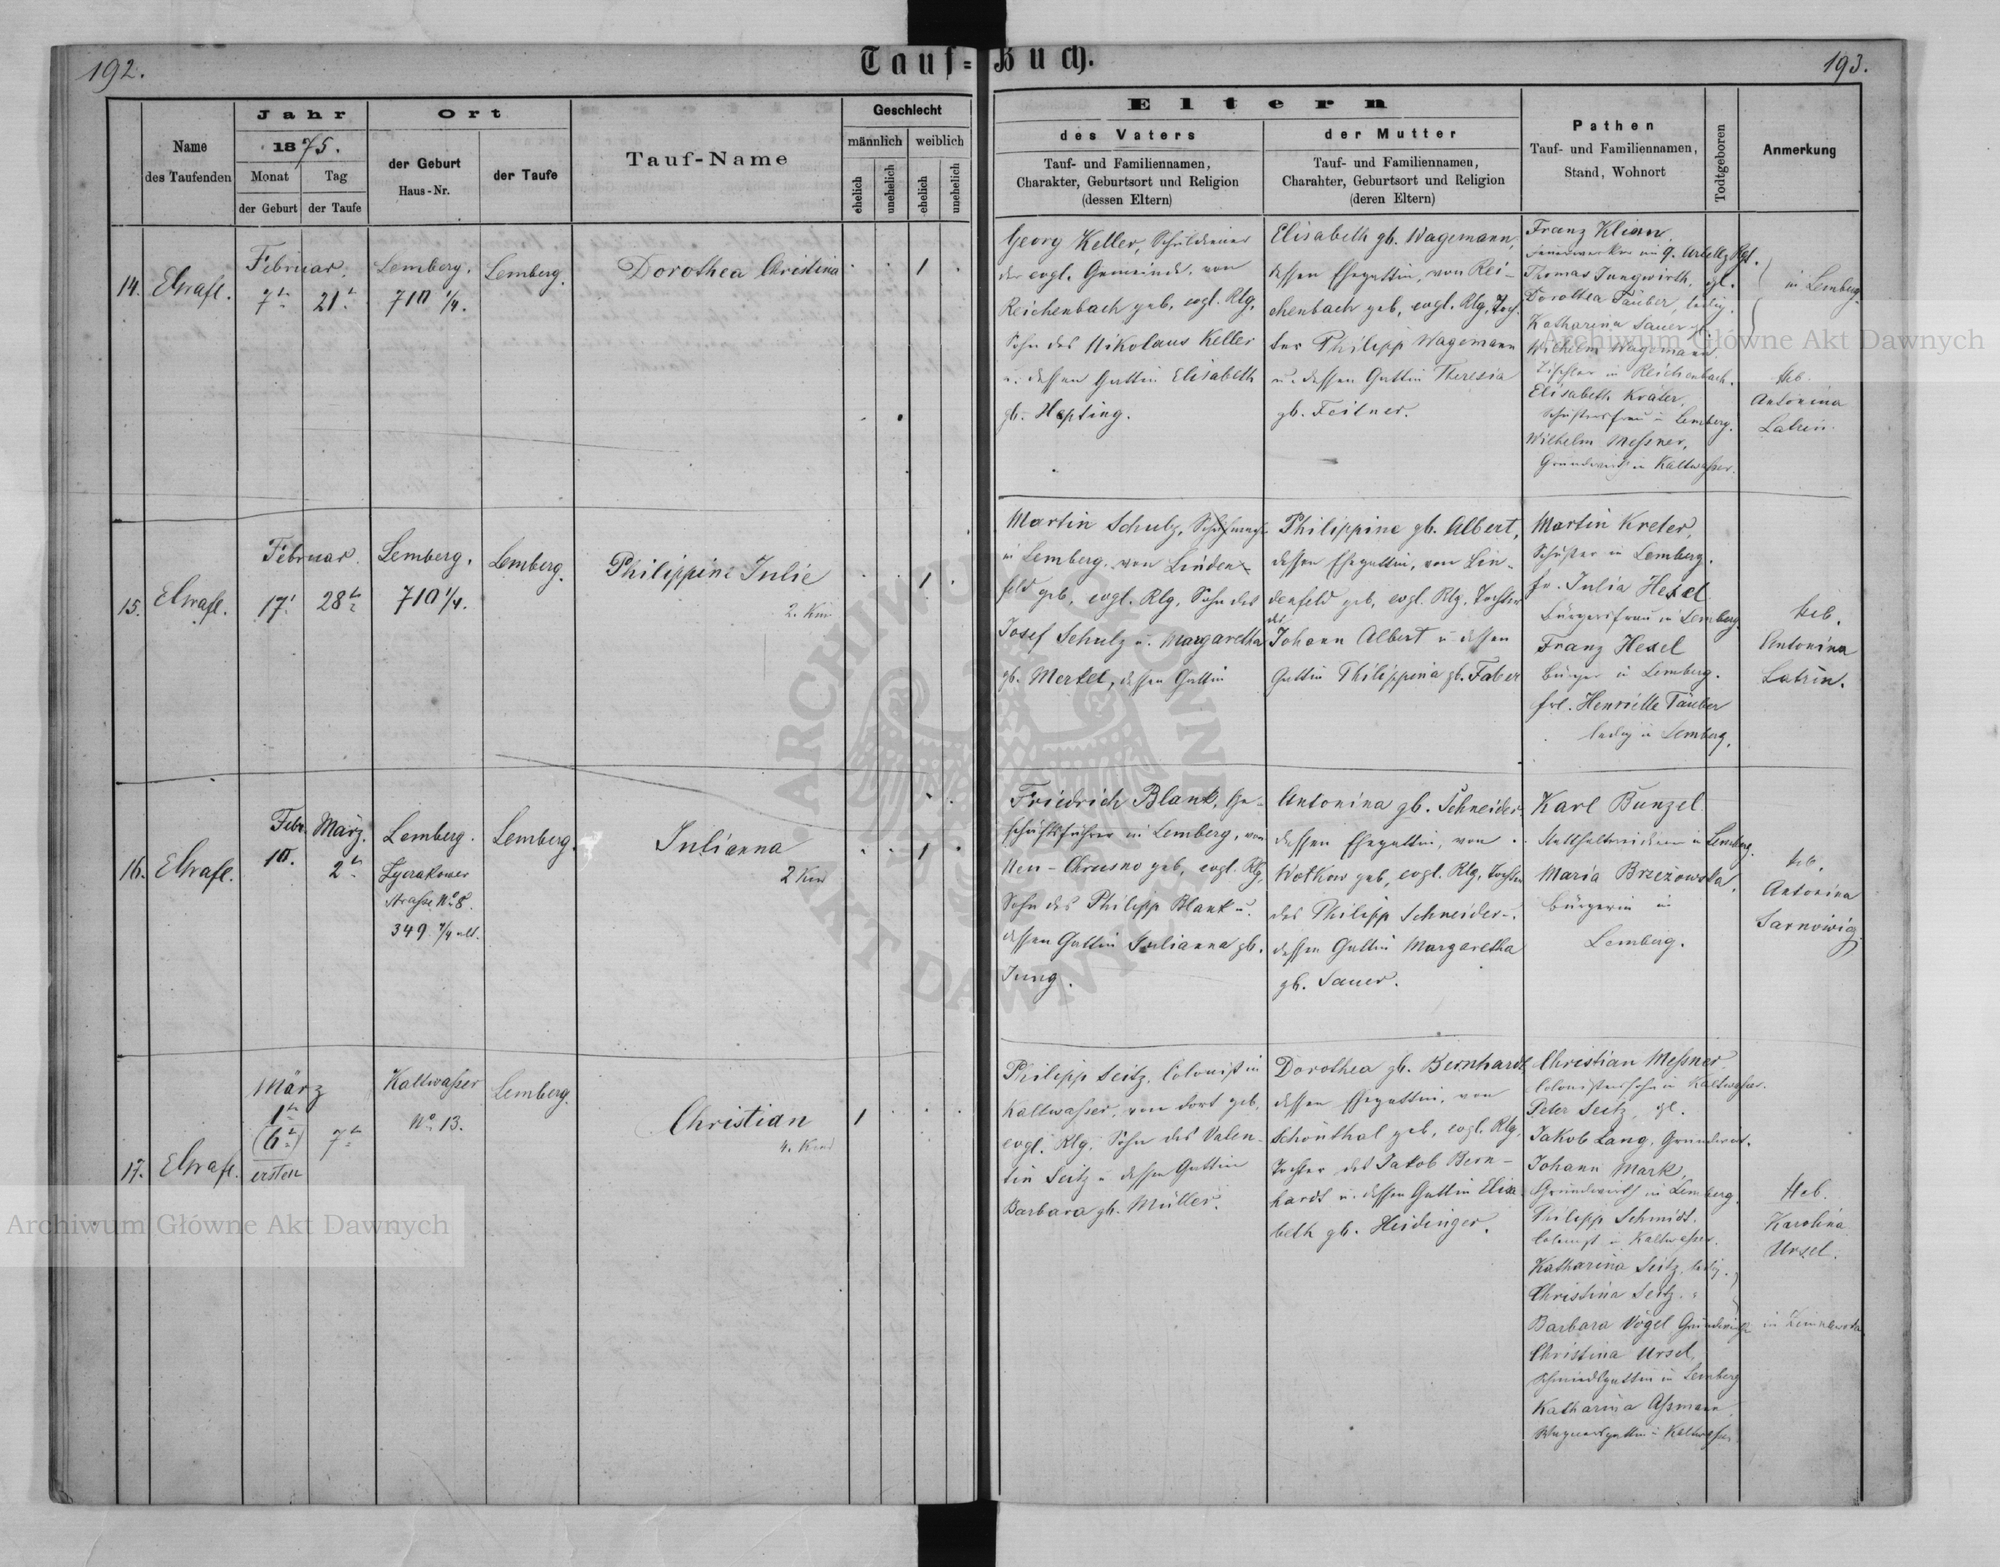 192.
Tauf=Buch.
193.
Name des Taufenden
Jahr
1875.
Monat
Tag
der Geburt
der Taufe
Ort
der Geburt
Haus-Nr.
der Taufe
Tauf-Name
Geschlecht
männlich
weiblich
ehelich
unehelich
ehelich
unehelich
Eltern
des Vaters
Tauf- und Familiennamen,
Charakter, Geburtsort und Religion
(dessen Eltern)
der Mutter
Tauf- und Familiennamen,
Charahter, Geburtsort und Religion
(deren Eltern)
Pathen
Tauf- und Familiennamen,
Stand, Wohnort
Todtgeboren
Anmerkung
14.
Februar.
7
21
Lemberg.
710 1/4.
Lemberg.
Dorothea Christina
1
Georg Keller, Schuldiener
der evgl. Gemeinde, von
Reichenbach geb, evgl. Rlg,
Sohn des Nikolaus Keller
u. dessen Gattin Elisabeth
gb. Hepting.
Elisabeth gb. Wagemann,
dessen Ehegattin, von Rei-
chenbach geb, evgl. Rlg, Toch-
ter Philipp Wagemann
u. dessen Gattin Theresia
gb. Feilner.
Franz Klian,
Thomas Jungwirth, gl.
Dorothea Täuber, ledig.
Katharina Sauer gl.
Wilhelm Wagemann.
Tischler in Reichenbach.
Elisabeth Kräter,
Schustersfrau in Lemberg.
Wilhelm Meßner,
Grundwirth in Kaltwasser.
in Lemberg.
Heb.
Antonina
Latein.
15.
Februar.
17
28
Lemberg.
710 1/4.
Lemberg.
Philippine Julie
2. Kin
1
Martin Schulz,
in Lemberg, von Linden-
feld geb, evgl. Rlg, Sohn des
Josef Schulz u. Margaretha
gb. Merkel, dessen Gattin
Philippine gb. Albert,
dessen Ehegattin, von Lin-
denfeld geb, evgl. Rlg. Tochter
des
Johann Albert u dessen
Gattin Philippina gb. Faber
Martin Kreter,
Schuster in Lemberg.
fr. Julia Hexel
Bürgersfrau in Lemberg.
Franz Hexel
Bürger in Lemberg.
frl. Henriette Täuber
ledig in Lemberg.
Heb.
Antonina
Latein.
16.
Febr.
10.
März.
2
Lemberg.
Lyczakower
Straße No 8.
349 4/4 alt.
Lemberg.
Julianna
2 Kin
1
Friedrich Blank, Ge-
schäftsführer in Lemberg, von
Neu-Chrusno geb, evgl. Rlg,
Sohn des Philipp Blank u.
dessen Gattin Julianna gb.
Jung.
Antonina gb. Schneider
dessen Ehegattin, von
Wolkow geb, evgl. Rlg, Tochter
des Philipp Schneider u.
dessen Gattin Margaretha
gb. Sauer.
Karl Bunzel
Statthaltereidiener in Lemberg.
Maria Brzeżowska,
Bürgerin in
Lemberg.
Heb.
Antonina
Sarnowicz
17.
März
1
(6)
ersten
7
Kaltwasser
No 13.
Lemberg.
Christian
4. Kind
1
Philipp Seitz, Colonist in
Kaltwasser, von dort geb,
evgl. Rlg. Sohn des Valen-
tin Seitz u dessen Gattin
Barbara gb. Müller.
Dorothea gb. Bernhardt
dessen Ehegattin, von
Schönthal geb, evgl. Rlg,
Tochter des Jakob Bern-
hardt u. dessen Gattin Elisa
beth gb. Heidinger.
Christian Meßner
Colonistensohn in Kaltwasser.
Peter Seitz, gl.
Jakob Lang, Grundwirt.
Johann Mark,
Grundwirth in Lemberg.
Philipp Schmidt.
Colonist in Kaltwasser.
Katharina Seitz, ledig.
Christina Seitz.
Barbara Vogel Grundwirth
Christina Ursel,
Schmiedsgattin in Lemberg
Katharina Aßmann
Wagnersgattin in Kaltwasser.
Heb.
Karolina
Ursel.
Archiwum Główne Akt Dawnych
Archiwum Główne Akt Dawnych
ARCHIWUM GŁÓWNE AKT DAWNYCH